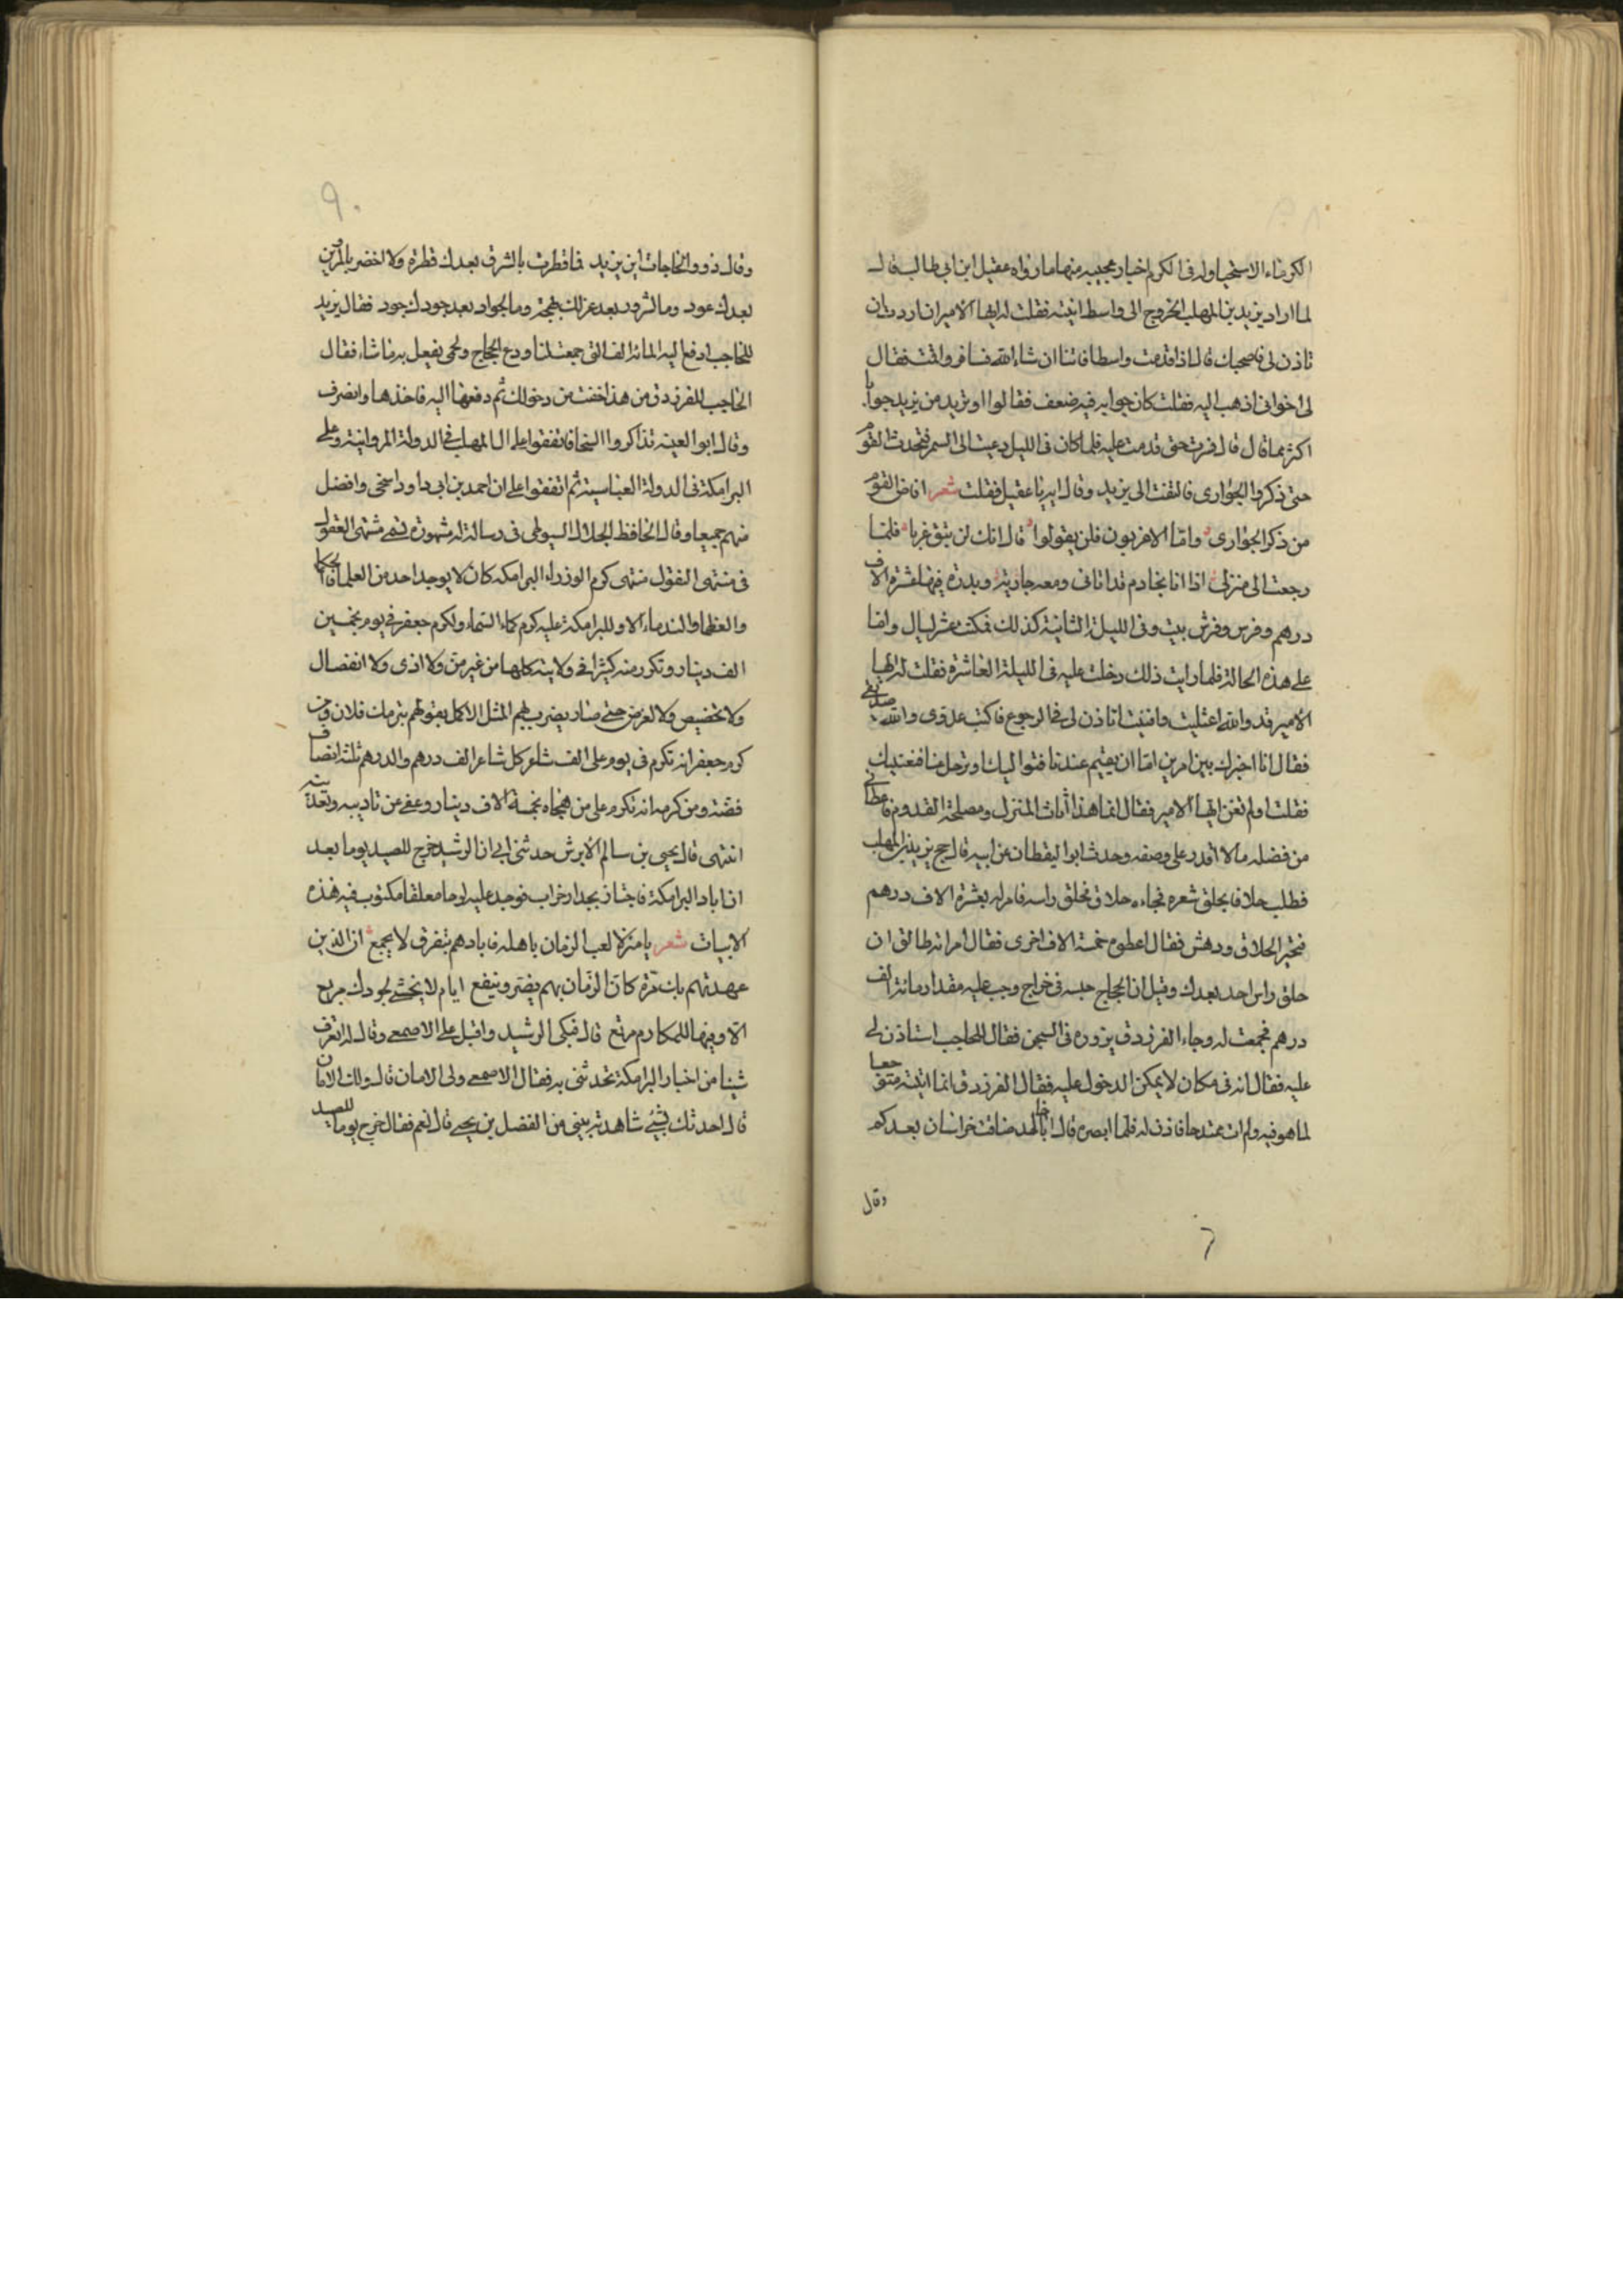 الكرماء الاسخيا وله فى الكرم اخبار عجيبه منها ما رواه عقيل ابن ابى طالب قال
لما اراد يزيد بن المهلب الخروج الى واسط اتيته فقلت له ايها الامير ان اردت ان
تاذن لى فاصحبك قال اذا قدمت واسطا فاتنا ان شاء الله فسافر واقمت فقال
لى اخوانى اذهب اليه فقلت كان جوابه فيه ضعف فقالوا اوتريد من يزيد جوابا
اكثر مما قال قال فسرت حتى قدمت عليه فلما كان فى الليل دعيت الى السمر فتحدث القوم
حتى ذكروا الجوارى فالتفت الى يزيد وقال ايه يا عقيل فقلت شعر افاض القوم
من ذكر الجوارى واما الاعزبون فلن يقولوا قال انك لن تبق عزبا فلما
رجعت الى منزلى اذا انا بخادم قد اتانى ومعه جارية وبدرة فيها عشرة الاف
درهم وفرس وفرش بيت وفى الليلة الثانية كذلك فمكث عشر ليال وانا
على هذه الحالة فلما رايت ذلك دخلت عليه فى الليلة العاشرة فقلت له ايها
الامير قد والله اغنيت واقنيت اتاذن لى فى الرجوع فاكبت عدوى واسر صديقى
فقال انا اخبرك بين امرين اما ان يقيم عندنا فنوليك او ترحل منا فنغنيك
فقلت اولم تغن ايها الامير فقال انما هذا اثاث المنزل ومصلحة القدوم فاعطانى
من فضله مالا اقدر على وصفه وحدث ابو اليقظان عن ابيه قال حج يزيد بن المهلب
فطلب حلاقا يحلق شعره فجاءه حلاق فحلق راسه فامر له بعشرة الاف درهم
فتحير الحلاق ودهش فقال اعطوه خمسة الاف اخرى فقال امراته طالق ان
حلق راس احد بعدك وقيل ان الحجاج حبسه فى خراج وجب عليه مقداره مائة الف
درهم فجمعت له وجاء الفرزدق يزوره فى السجن فقال للحاجب استاذن لى
عليه فقال انه فى مكان لا يمكن الدخول عليه فقال الفرزدق انما اتيته متوجعا
لما هو فيه ولم ات ممتدحا فاذن له فلما ابصره قال ابا خالد ضاقت خراسان بعدكم
وقال
٩٠
وقال ذوو الحاجات اين يزيد فما قطرت بالشرق بعدك قطرة ولا اخضر بالمروين
بعدك عود وما لسرور بعد عزلك بهجة وما لجواد بعد جودك جود فقال يزيد
للحاجب ادفع اليه المائة الف التى جمعت لنا ودع الحجاج ولحمى يفعل به ما شاء فقال
الحاجب للفرزدق من هذا خفت من دخولك ثم دفعها اليه فاخذها وانصرف
وقال ابو العينه تذاكروا السخا فاتفقوا على ال المهلب فى الدولة المروانية وعلى
البرامكة فى الدولة العباسية ثم اتفقوا على ان احمد بن ابى داود اسخى وافضل
منهم جميعا وقال الحافظ الجلال السيوطى فى رسالة له مشهورة تسمى مشتهى العقول
فى منتهى النقول منتهى كرم الوزراء البرامكه كان لا يوجد احد من العلماء والحكما
والعظما والندماء الا وللبرامكة عليه كرم كماء السماء ولكرم جعفر فى يوم بخمسين
الف دينار وتكرر منه كثيرا فى ولايته كلها من غير من ولا اذى ولا انفصال
ولا تخصيص ولا لغرض حتى صار يضرب بهم المثل الاكمل بقولهم تبرمك فلان ومن
كرم جعفر انه تكرم فى يوم على الف شاعر كل شاعر الف درهم والدرهم ثلثة انصاف
فضة ومن كرمه انه تكرم على من هجاه بخمسة الاف دينار وعفى عن تاديبه وتعذيبه
انتهى قال يحيى بن سالم الابرش حدثنى ابى ان الرشيد خرج للصيد يوما بعد
ان اباد البرامكة فاجتاز بجدار خراب فوجد عليه لوحا معلقا مكتوب فيه هذه
الابيات شعر يا منزلا لعب الزمان باهله فابادهم بتفرق لا يجمع ان الذين
عهدتهم بك مرة كان الزمان بهم يضر وينفع ايام لا يخشى لجودك مربع
الا وفيها للمكارم مرتع قال فبكى الرشيد واقبل على الاصمعى وقال له اتعرف
شيئا من اخبار البرامكة تحدثنى به فقال الاصمعى ولى الامان قال ولك الامان
قال احدثك بشىء شاهدته بعينى من الفضل بن يحيى قال نعم فقال خرج يوما للصيد